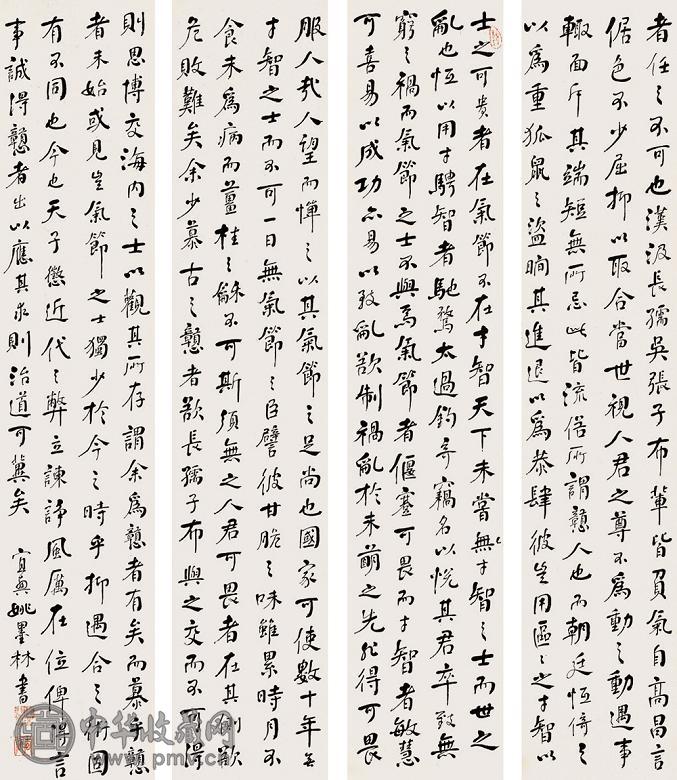 者任之不可也漢汲長孺吳張子布輩皆負氣自高昌言
倨色不少屈抑以取合當世視人君之尊不為動之動遇事
輙面斥其端短無所忌此皆流俗所謂戇人也而朝廷恆倚之
以為重狐鼠之盜瞯其進退以為恭肆彼豈用區區之才智以
士之可貴者在氣節不在才智天下未嘗無才智之士而世之
亂也恆以用才騁智者馳騖太過釣奇竊名以悅其君卒致無
窮之禍而氣節之士不與焉氣節者偃蹇可畏而才智者敏慧
可喜易以成功亦易以致亂欲制禍亂於未萌之先非得可畏
服人哉人望而憚之以其氣節之足尚也國家可使數十年無
才智之士而不可一日無氣節之臣譬彼甘脆之味雖累時月不
食未為病而薑桂之龢不可斯須無之人君可畏者在其側欲
危敗難矣余少慕古之戇者欲長孺子布與之交而不可得
則思博交海內之士以觀其所存謂余為戇者有矣而慕乎戇
者未始或見豈氣節之士獨少於今之時乎抑遇合之術固
有不同也今也天子懲近代之弊立諫諍風厲在位俾得言
事誠得戇者出以應其求則治道可冀矣 宜興姚墨林書
中华收藏网
pmv.cang.com